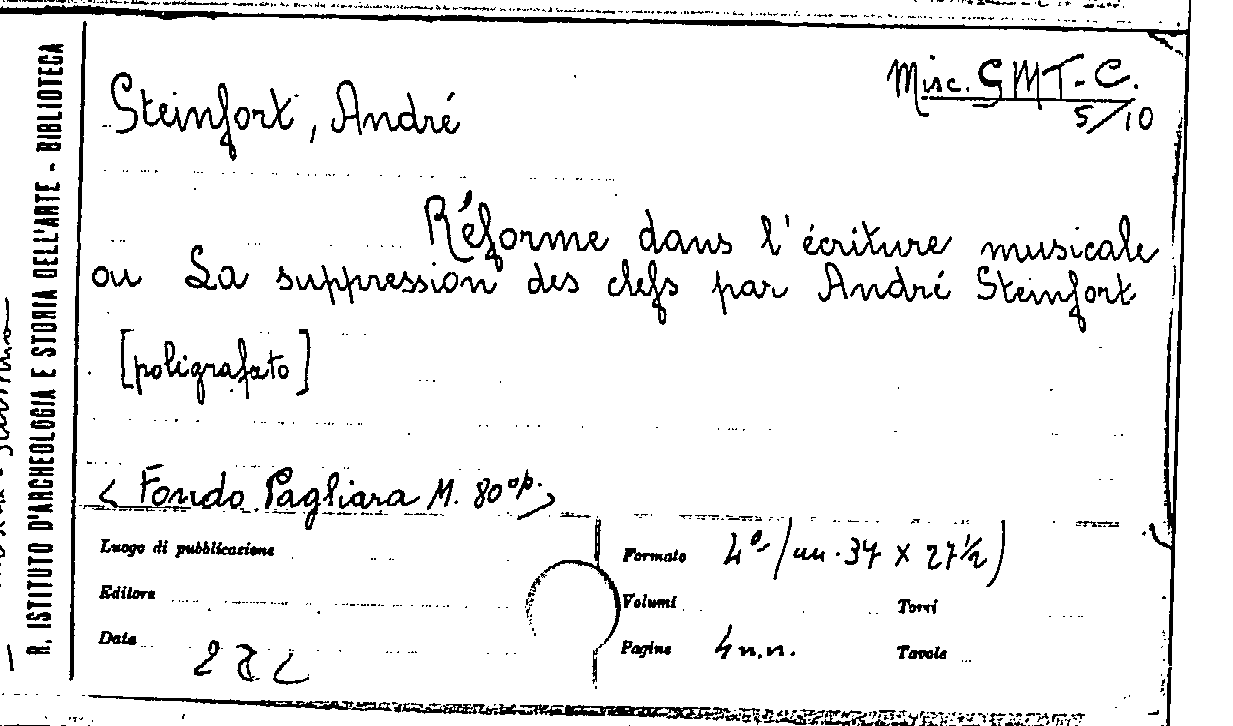 R. ISTITUTO D'ARCHEOLOGIA E STORIA DELL'ARTE - BIBLIOTECA
Misc. GMT-C.
5/10
Steinfort, André
Réforme dans l'écriture musicale
ou La suppression des clefs par André Steinfort
[poligrafato]
< Fondo Pagliara M. 80 op. >
Luogo di pubblicazione
Formato 4° (cm. 37 x 27 ½)
Editore
Volumi Tomi
Data
Pagine 4 n.n. Tavole